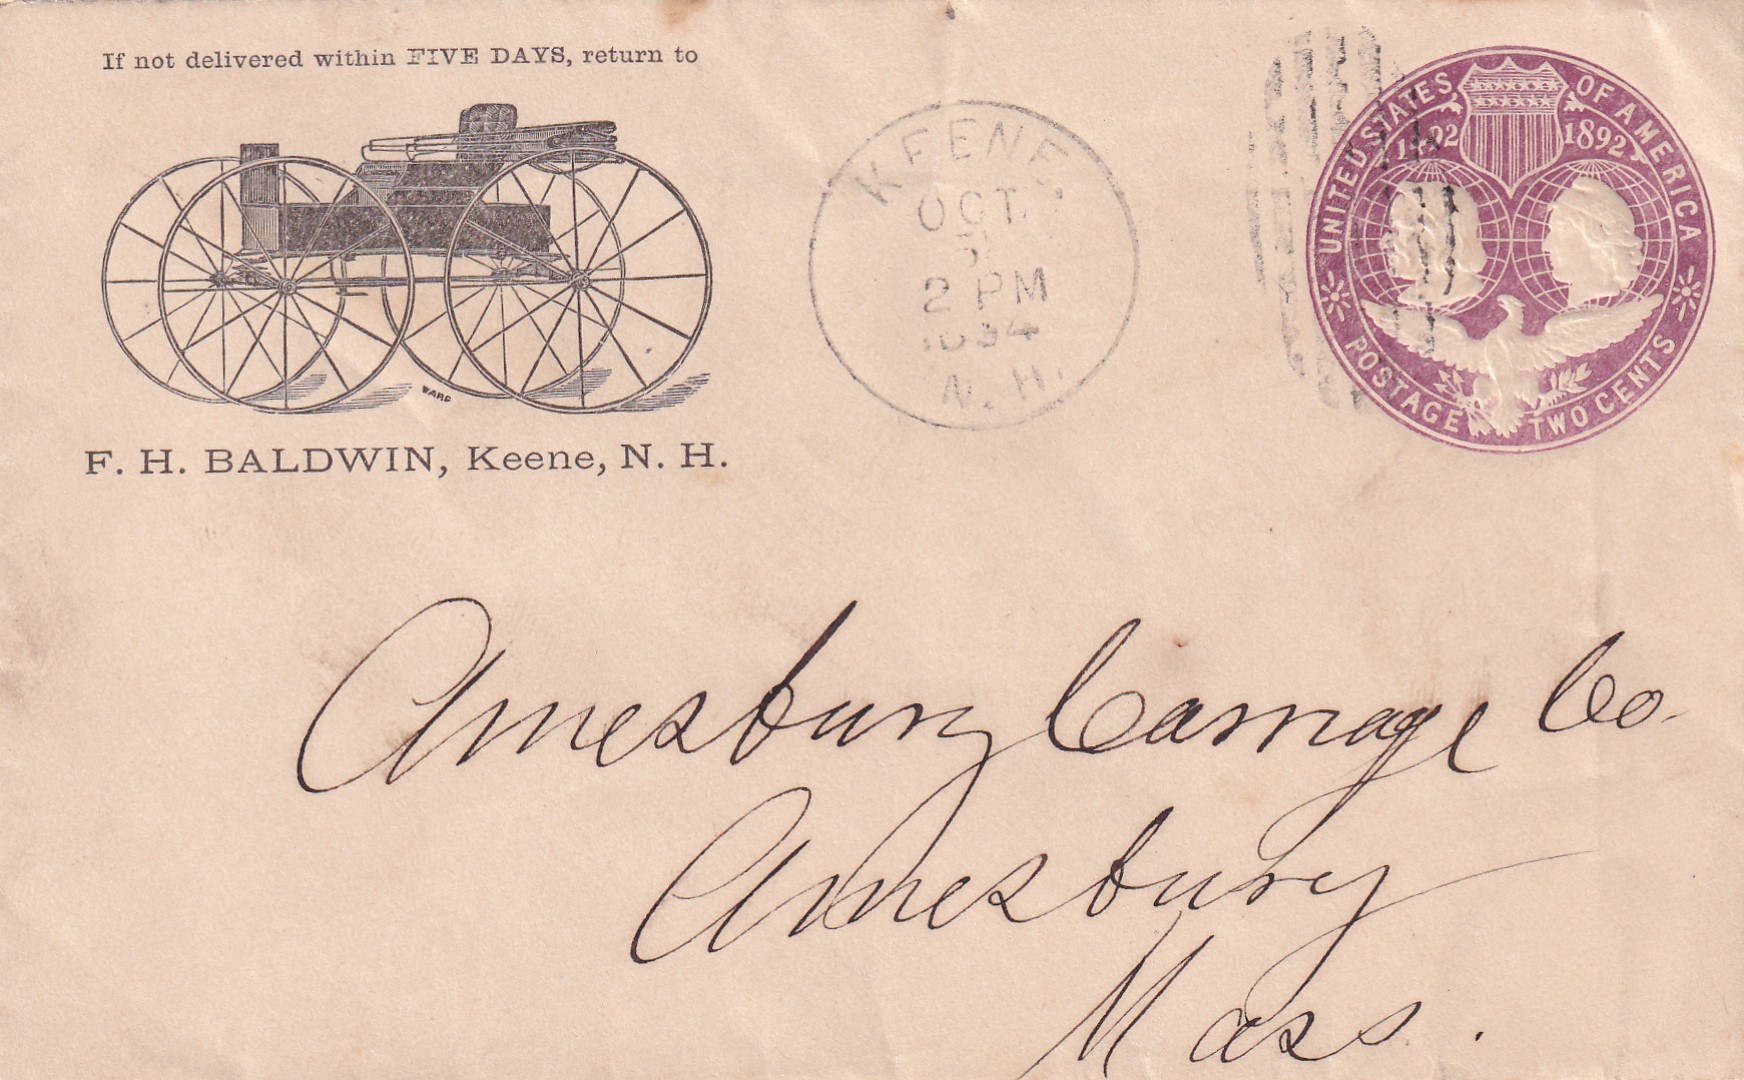 If not delivered within FIVE DAYS, return to
WARD
F. H. BALDWIN, Keene, N. H.
KEENE,
OCT
2 PM
1894
N. H.
UNITED STATES OF AMERICA
1492 1892
POSTAGE TWO CENTS
Amesbury Carriage Co.
Amesbury
Mass.